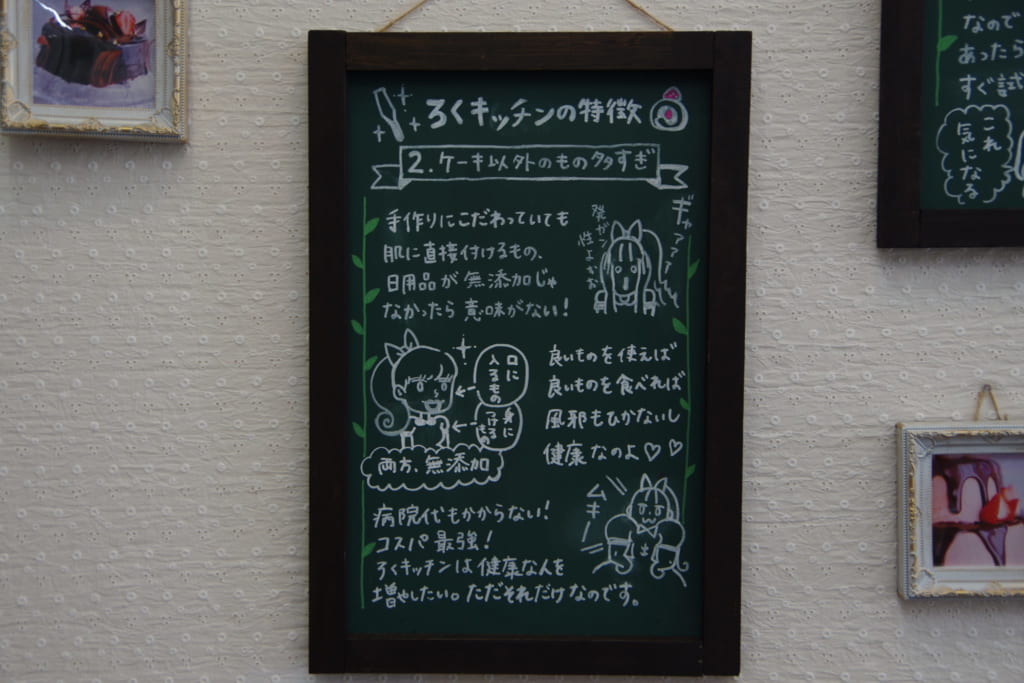 ろくキッチンの特徴
2.ケーキ以外のもの多すぎ
手作りにこだわっていても
肌に直接付けるもの、
日用品が無添加じゃ
なかったら意味がない!
ギャアアア
発がン
性よおお
口に
入るもの
身に
つける
もの
両方、無添加
良いものを使えば
良いものを食べれば
風邪もひかないし
健康なのよ♡♡
ムキー
病院代もかからない!
コスパ最強!
ろくキッチンは健康な人を
増やしたい。ただそれだけなのです。
なので
あったら
すぐ試
これ
気になる